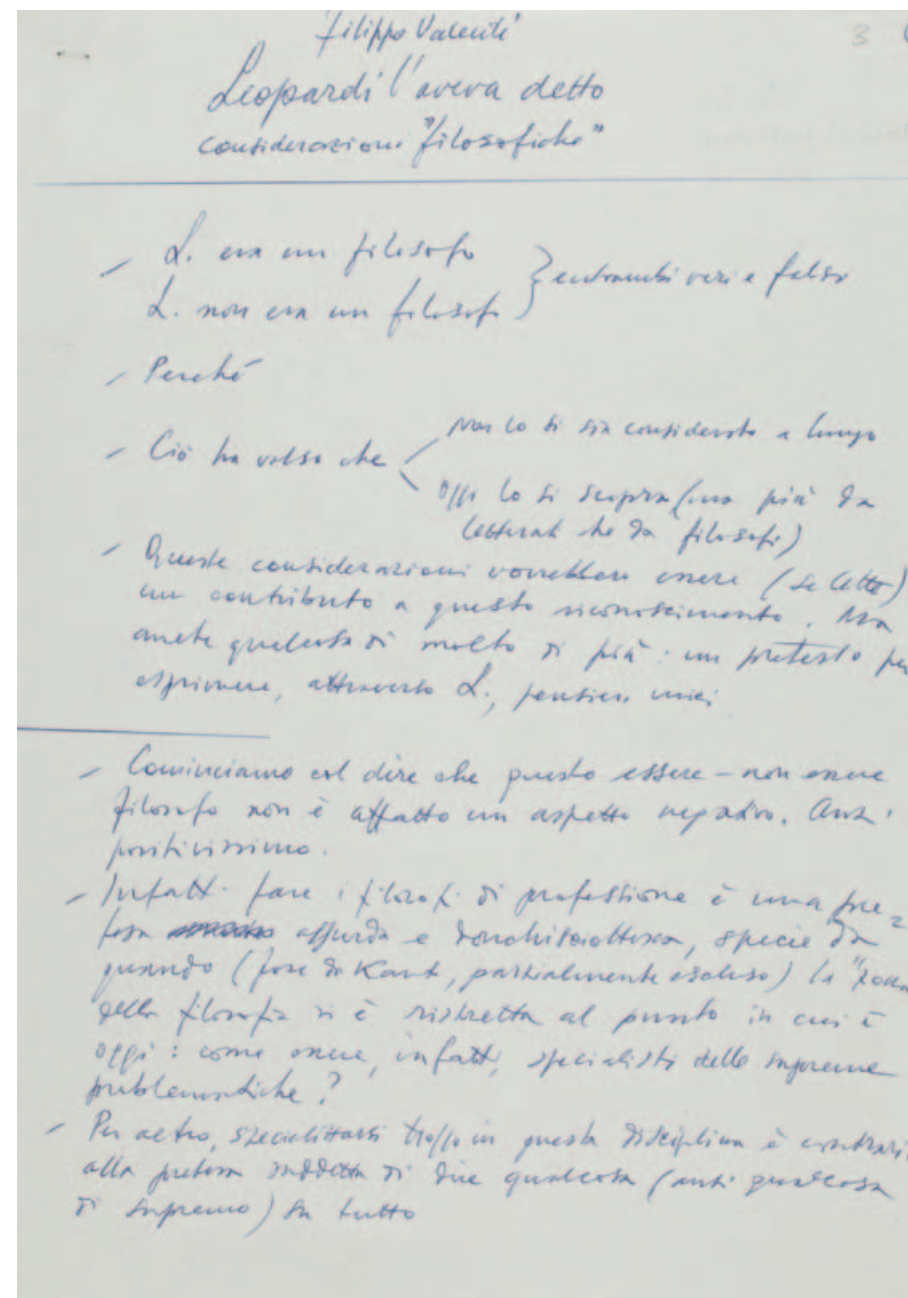 Filippo Valenti
3
Leopardi l'aveva detto
considerazioni "filosofiche"
– L. era un filosofo
} entrambi veri e falsi
L. non era un filosofo
– Perché
– Ciò ha valso che
non lo si sia considerato a lungo
oggi lo si scopra (ma più da
letterati che da filosofi)
– Queste considerazioni vorrebbero essere (se lette)
un contributo a questo riconoscimento. Ma
anche qualcosa di molto di più: un pretesto per
esprimere, attraverso L., pensieri miei
– Cominciamo col dire che questo essere – non essere
filosofo non è affatto un aspetto negativo. Anzi
positivissimo.
– Infatti fare i filosofi di professione è una pre=
tesa assurda e donchisciottesca, specie da
quando (forse da Kant, parzialmente escluso) la "zona
della filosofia si è ristretta al punto in cui è
oggi: come essere, infatti, specialisti delle supreme
problematiche?
– Per altro, specializzarsi troppo in questa disciplina è contrari
alla pretesa suddetta di dire qualcosa (anzi qualcosa
di supremo) su tutto